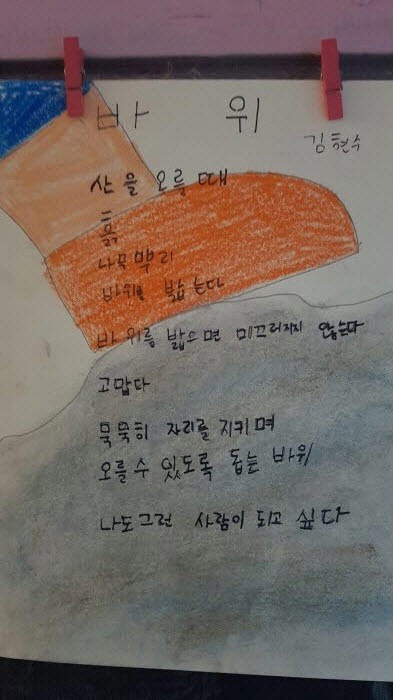 바 위
김현수
산을 오를 때
흙
나무뿌리
바위를 밟는다
바위를 밟으면 미끄러지지 않는다
고맙다
묵묵히 자리를 지키며
오를 수 있도록 돕는 바위
나도 그런 사람이 되고 싶다